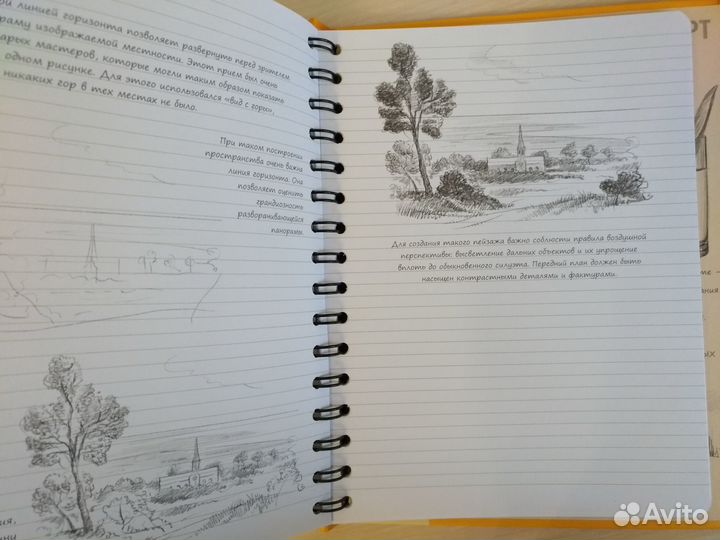 ой линией горизонта позволяет развернуть перед зрителем
раму изображаемой местности. Этот прием был очень
арых мастеров, которые могли таким образом показать
одном рисунке. Для этого использовался «вид с горы»,
никаких гор в тех местах не было.
При таком построении
пространства очень важна
линия горизонта. Она
позволяет оценить
грандиозность
разворачивающейся
панорамы.
Для создания такого пейзажа важно соблюсти правила воздушной
перспективы: высветление дальних объектов и их упрощение
вплоть до обыкновенного силуэта. Передний план должен быть
насыщен контрастными деталями и фактурами.
РТ
те –
ания
ых
ния,
Avito